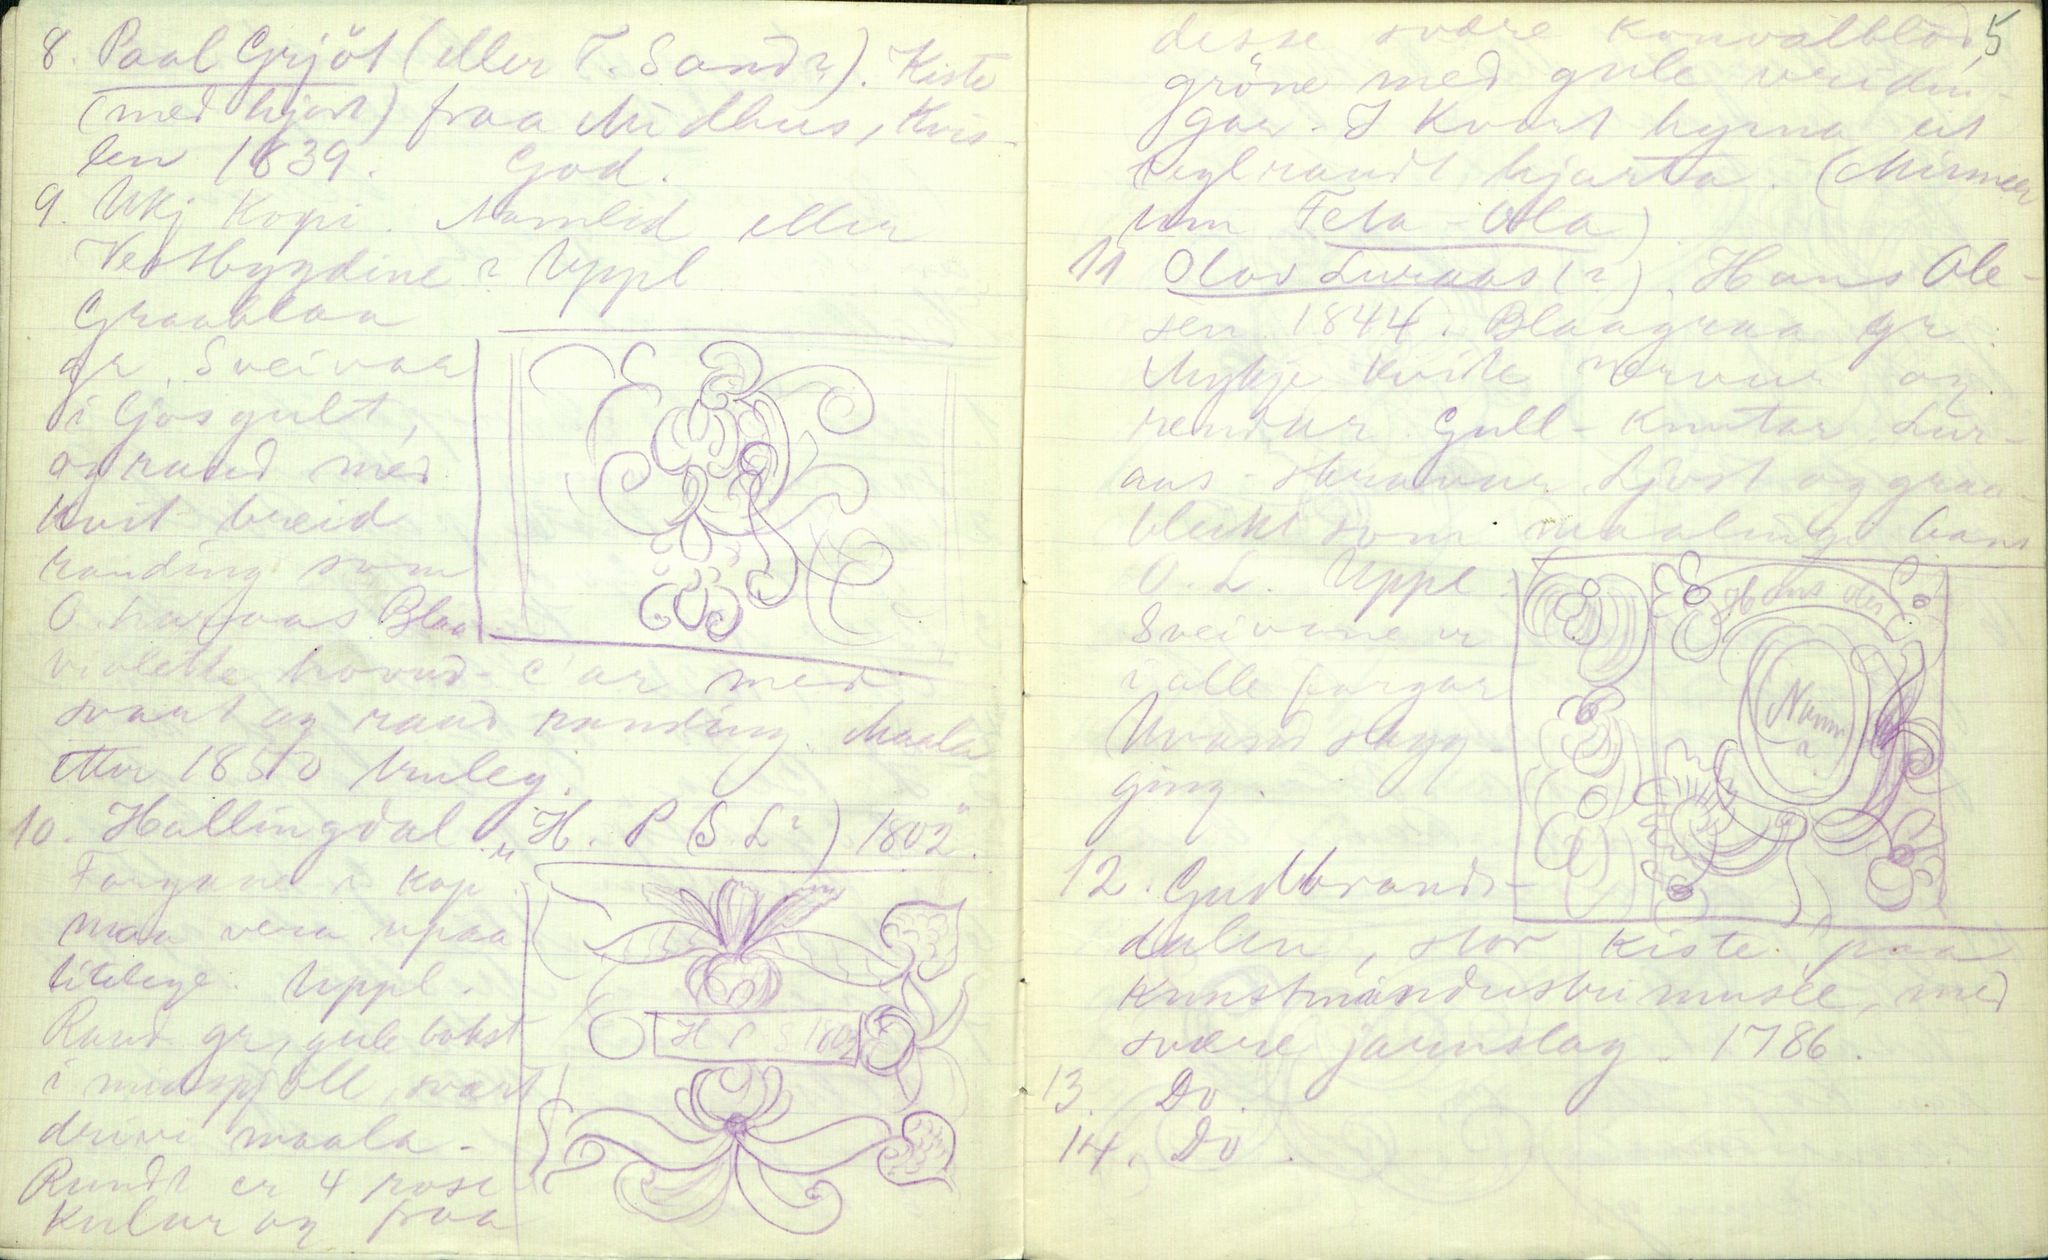 8. Paal Grjöt (eller T. Sand?). Kiste
(med hjort) fraa Midhus, Kvis-
len 1839. God.
9. Ukj Kopi. Aamlid eller
Vestbygdine? Uppl
Graablaa
gr. Sveivar
i ljosgult,
og raud med
kvit breid
randing som
O. Luraas Blaa
violette hovud-C'ar med
svart og raud randing. Maala
etter 1850 truleg.
10. Hallingdal. "H. P (S. L?) 1802".
Fargane i kop.
maa vera upaa
litelege. Uppl.
Raud gr, gule bokst
i midspjöll, svart
drivi maala.
Rundt er 4 rose
kulur og fraa
H P S 1802
5
desse svære konvalblad,
gröne med gule vridin-
gar. I kvart hyrna eit
teglraudt hjarta. (Minner
um Teta-Ola)
11 Olav Luraas (?). Hans Ole-
sen. 1844. Blaagraa gr.
Mykje kvite nervur og
rendur. Gull-knutar. Lur-
aas-skravur. Ljost og graa-
bleikt som maaling hans
O. L. Uppl:
Sveivune er
i alle fargar
Uvand skygg-
ging.
Hans Oles
Namn
?
12. Gudbrands-
dalen, stor kiste paa
Kunstindustrimusée, med
svære jarnslag. 1786.
13. Do.
14. Do.